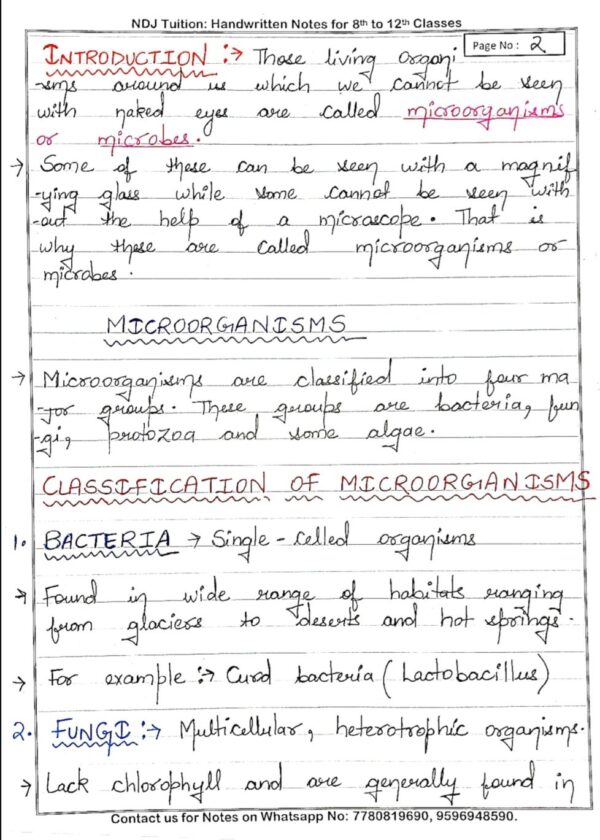 NDJ Tuition: Handwritten Notes for 8th to 12th Classes
Page No: 2
INTRODUCTION :→ Those living organi
-sms around us which we cannot be seen
with naked eyes are called microorganisms
or microbes.
→ Some of these can be seen with a magnif
-ying glass while some cannot be seen with
-out the help of a microscope. That is
why these are called microorganisms or
microbes.
MICROORGANISMS
→ Microorganisms are classified into four ma
-jor groups. These groups are bacteria, fun
-gi, protozoa and some algae.
CLASSIFICATION OF MICROORGANISMS
1. BACTERIA → Single-celled organisms
→ Found in wide range of habitats ranging
from glaciers to deserts and hot springs.
→ For example :→ Curd bacteria (Lactobacillus)
2. FUNGI :→ Multicellular, heterotrophic organisms.
→ Lack chlorophyll and are generally found in
Contact us for Notes on Whatsapp No: 7780819690, 9596948590.